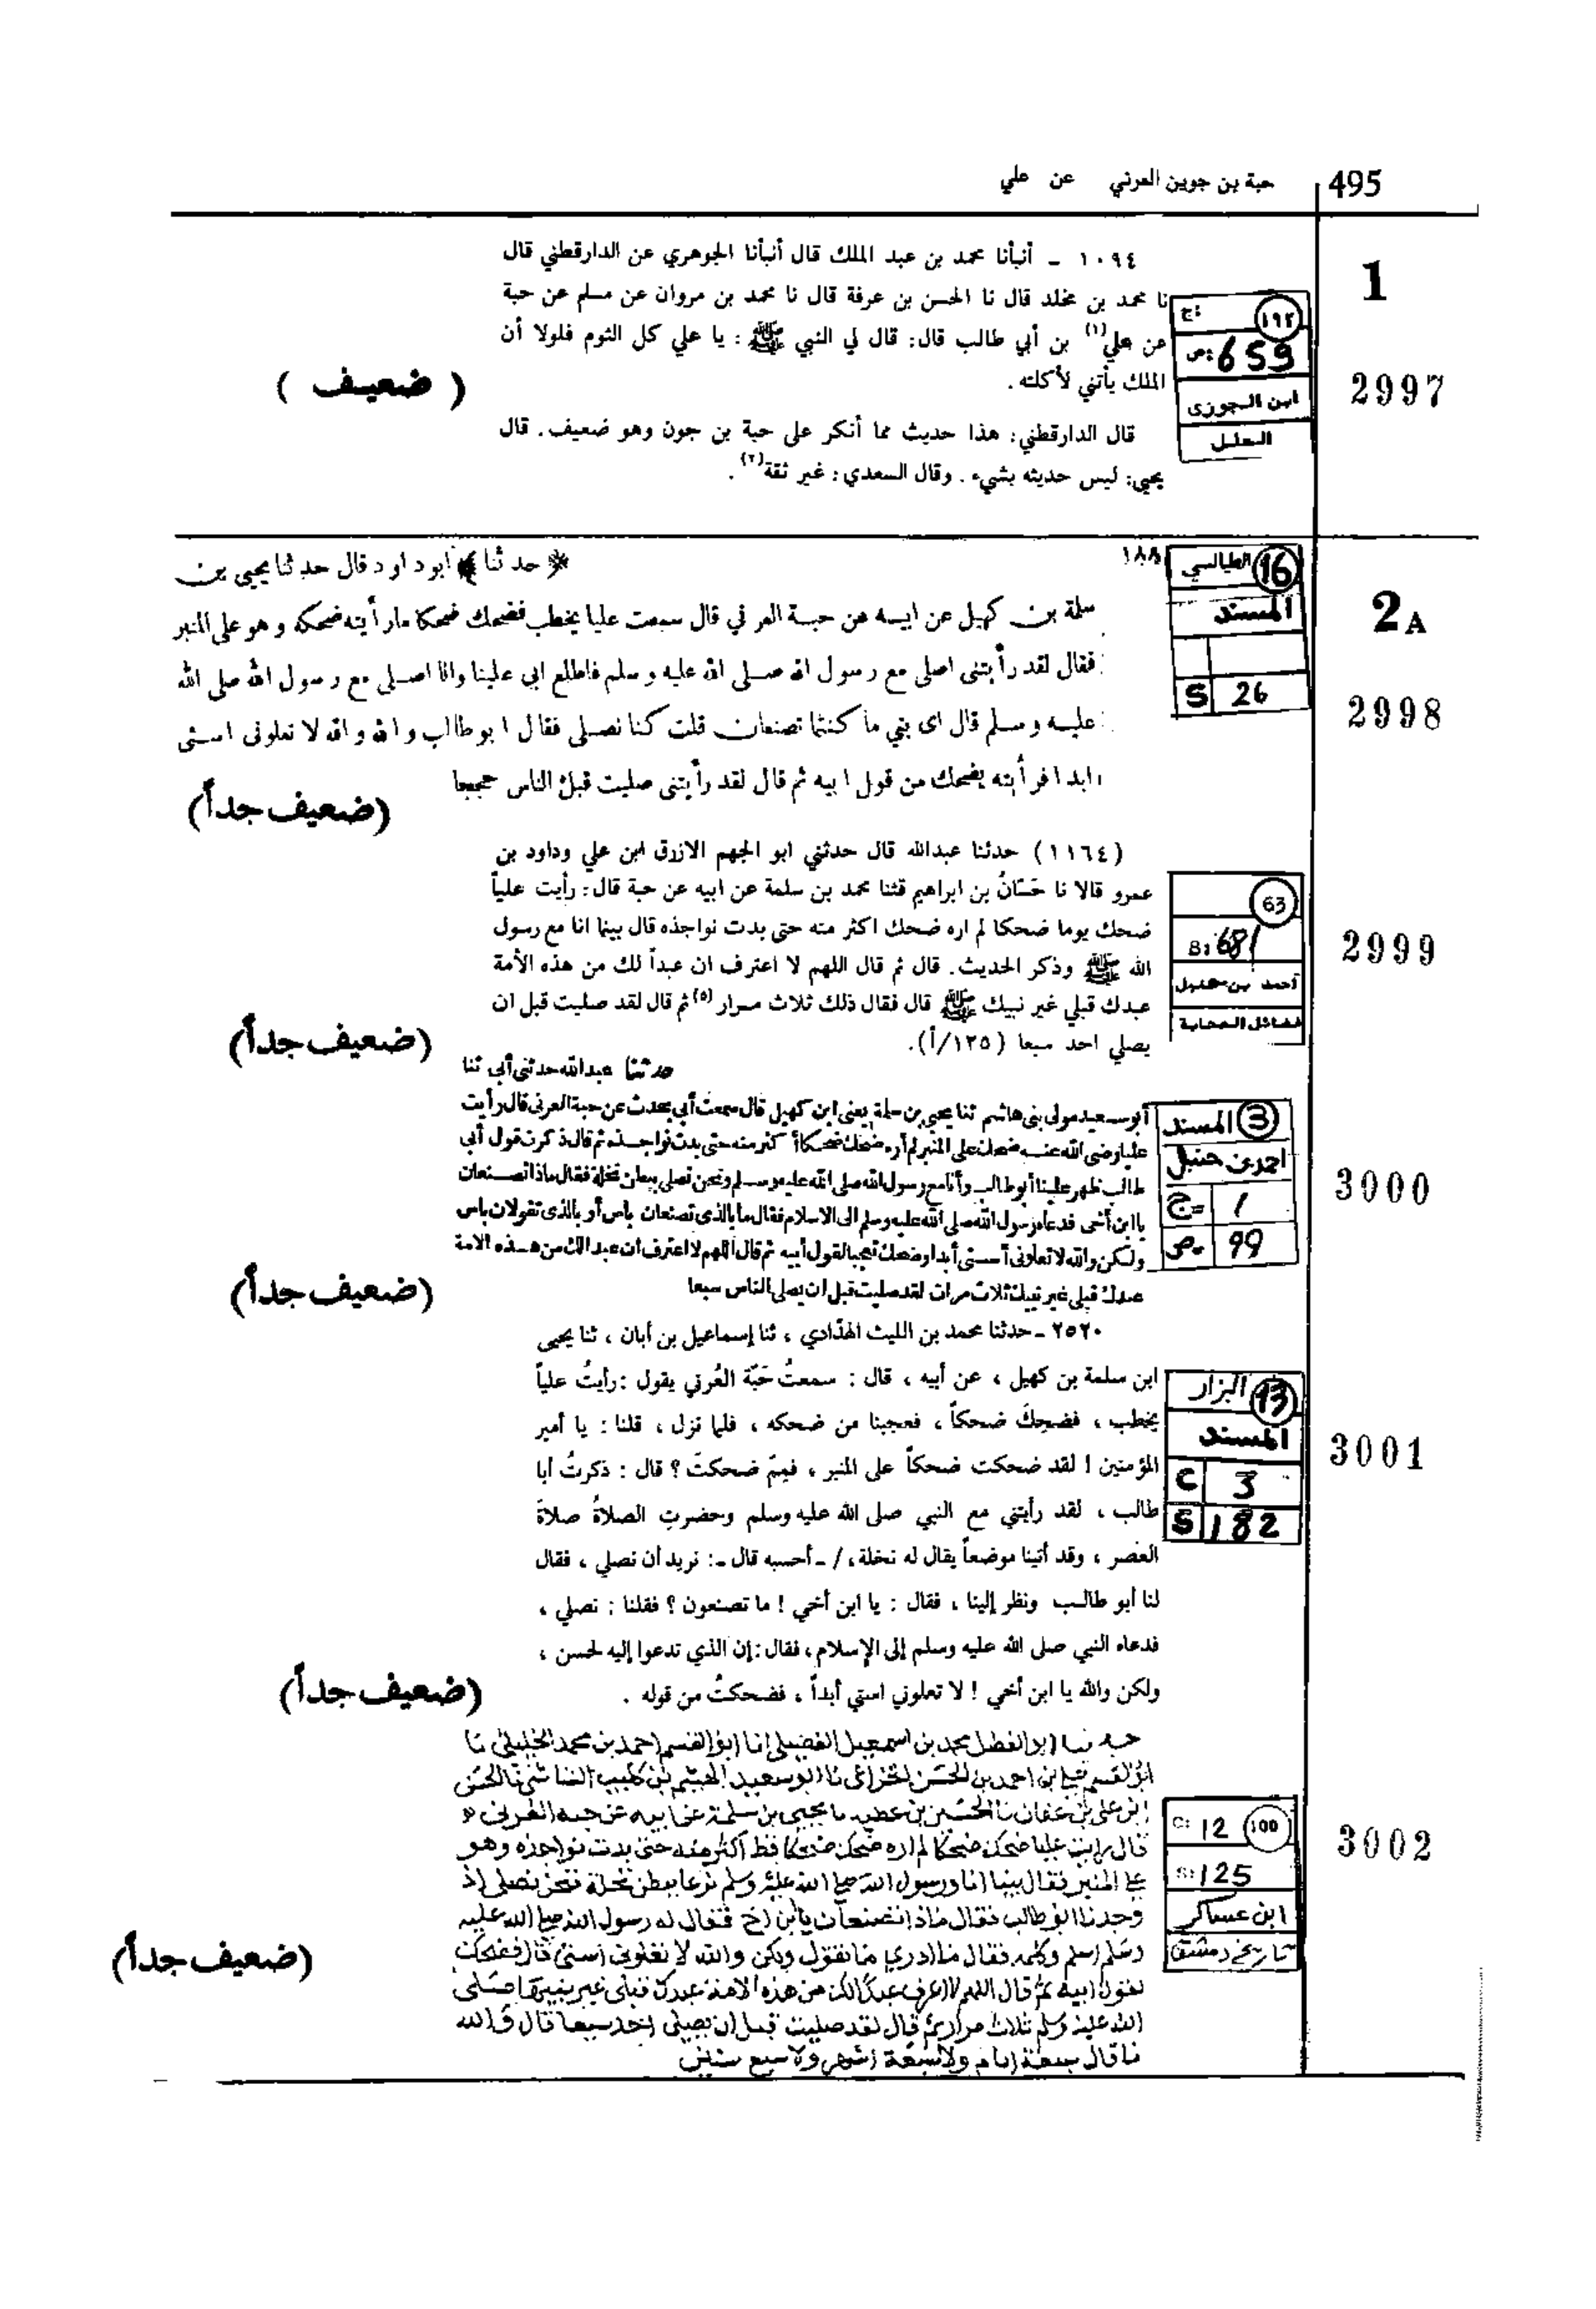 حبة بن جوين العرني عن علي
495
1
2997
١٠٩٤ - أنبأنا محمد بن عبد الملك قال أنبأنا الجوهري عن الدارقطني قال
نا محمد بن مخلد قال نا الحسن بن عرفة قال نا محمد بن مروان عن مسلم عن حبة
عن علي(١) بن أبي طالب قال: قال لي النبي ﷺ: يا علي كل الثوم فلولا أن
الملك يأتني لأكلته .
( ضعيف )
قال الدارقطني: هذا حديث مما أنكر على حبة بن جون وهو ضعيف. قال
يحيى: ليس حديثه بشيء. وقال السعدي: غير ثقة(٢).
ج: ١٩٢
ص: 659
ابن الجوزي
العلل
2A
2998
١٨٨
الطيالسي 16
المسند
S 26
حدثنا ابو داود قال حدثنا يحيى بن
سلمة بن كهيل عن ابيه عن حبة العرني قال سمعت عليا يخطب فضحك ضحكا ما رأيته ضحكه وهو على المنبر
فقال لقد رأيتنى اصلى مع رسول الله صلى الله عليه وسلم فاطلع ابي علينا وانا اصلى مع رسول الله صلى الله
عليه وسلم قال اى بني ما كنتما تصنعان قلت كنا نصلى فقال ابو طالب والله والله لا تعلونى استى
ابدا فرأيته يضحك من قول ابيه ثم قال لقد رأيتنى صليت قبل الناس حججا
(ضعيف جداً)
2999
63
S: 681
أحمد بن حنبل
فضائل الصحابة
(١١٦٤) حدثنا عبدالله قال حدثني ابو الجهم الازرق ابن علي وداود بن
عمرو قالا نا حَسّانُ بن ابراهيم قثنا محمد بن سلمة عن ابيه عن حبة قال: رأيت علياً
ضحك يوما ضحكا لم اره ضحك اكثر منه حتى بدت نواجذه قال بينما انا مع رسول
الله ﷺ وذكر الحديث. قال ثم قال اللهم لا اعترف ان عبداً لك من هذه الأمة
عبدك قبلي غير نبيك ﷺ قال فقال ذلك ثلاث مرار(٥) ثم قال لقد صليت قبل ان
يصلي احد سبعا (١٢٥/أ).
(ضعيف جداً)
3000
3 المسند
احمد بن حنبل
ج= 1
ص= 99
حدثنا عبدالله حدثنى أبى ثنا
أبو سعيد مولى بنى هاشم ثنا يحيى بن سلمة يعنى ابن كهيل قال سمعت أبى يحدث عن حبة العرنى قال رأيت
عليا رضى الله عنه ضحك على المنبر لم أره ضحك ضحكا أكثر منه حتى بدت نواجذه ثم قال ذكرت قول أبى
طالب ظهر علينا أبو طالب وأنا مع رسول الله صلى الله عليه وسلم ونحن نصلى ببطن نخلة فقال ماذا تصنعان
يا ابن أخى فدعاه رسول الله صلى الله عليه وسلم الى الاسلام فقال ما بالذى تصنعان بأس أو بالذى تقولان بأس
ولكن والله لا تعلونى أستى أبدا وضحك تعجبا لقول أبيه ثم قال اللهم لا اعترف ان عبدا لك من هذه الامة
عبدك قبلى غير نبيك ثلاث مرات لقد صليت قبل ان يصلى الناس سبعا
(ضعيف جداً)
3001
البزار 13
المسند
C 3
S 182
٢٥٢٠ - حدثنا محمد بن الليث الهدّادي ، ثنا إسماعيل بن أبان ، ثنا يحيى
ابن سلمة بن كهيل ، عن أبيه ، قال : سمعتُ حَبّة العُرني يقول : رأيتُ علياً
يخطب ، فضحِكَ ضحكاً ، فعجبنا من ضحكه ، فلما نزل ، قلنا : يا أمير
المؤمنين ! لقد ضحكت ضحكاً على المنبر ، فيمَ ضحكتَ ؟ قال : ذكرتُ أبا
طالب ، لقد رأيتني مع النبي صلى الله عليه وسلم وحضرتِ الصلاةُ صلاةَ
العصر ، وقد أتينا موضعاً يقال له نخلة ، / - أحسبه قال - : نريد أن نصلي ، فقال
لنا أبو طالب ونظر إلينا ، فقال : يا ابن أخي ! ما تصنعون ؟ فقلنا : نصلي ،
فدعاه النبي صلى الله عليه وسلم إلى الإسلام ، فقال : إن الذي تدعوا إليه لحسن ،
ولكن والله يا ابن أخي ! لا تعلوني استي أبداً ، فضحكتُ من قوله .
(ضعيف جداً)
3002
C: 12 100
S: 125
ابن عساكر
تاريخ دمشق
حدثنا ابو الفضل محمد بن اسمعيل الفضيلي انا ابو القسم احمد بن محمد الخليلي نا
ابو القسم علي بن احمد بن الحسن الخزاعي نا ابو سعيد الهيثم بن كليب الشاشي نا الحسن
ابن علي بن عفان نا الحسين بن عطية نا يحيى بن سلمة عن ابيه عن حبه العرني
قال رايت عليا ضحك ضحكا لم اره ضحك ضحكا قط اكثر منه حتى بدت نواجذه وهو
على المنبر فقال بينا انا ورسول الله صلى الله عليه وسلم نرعا ببطن نخلة فنحن نصلي اذ
وجدنا ابو طالب فقال ماذا تصنعان يابن اخ فقال له رسول الله صلى الله عليه
وسلم اسلم وكلمه فقال ما ادري ما تقول ولكن والله لا تعلوني استي قال فضحكت
لقول ابيه ثم قال اللهم لا اعرف عبدا لك من هذه الامة عبدك قبلي غير نبيها صلى
الله عليه وسلم ثلاث مرار ثم قال لقد صليت قبل ان يصلي احد سبعا قال والله
ما قال سبعة ايام ولا سبعة اشهر ولا سبع سنين
(ضعيف جداً)